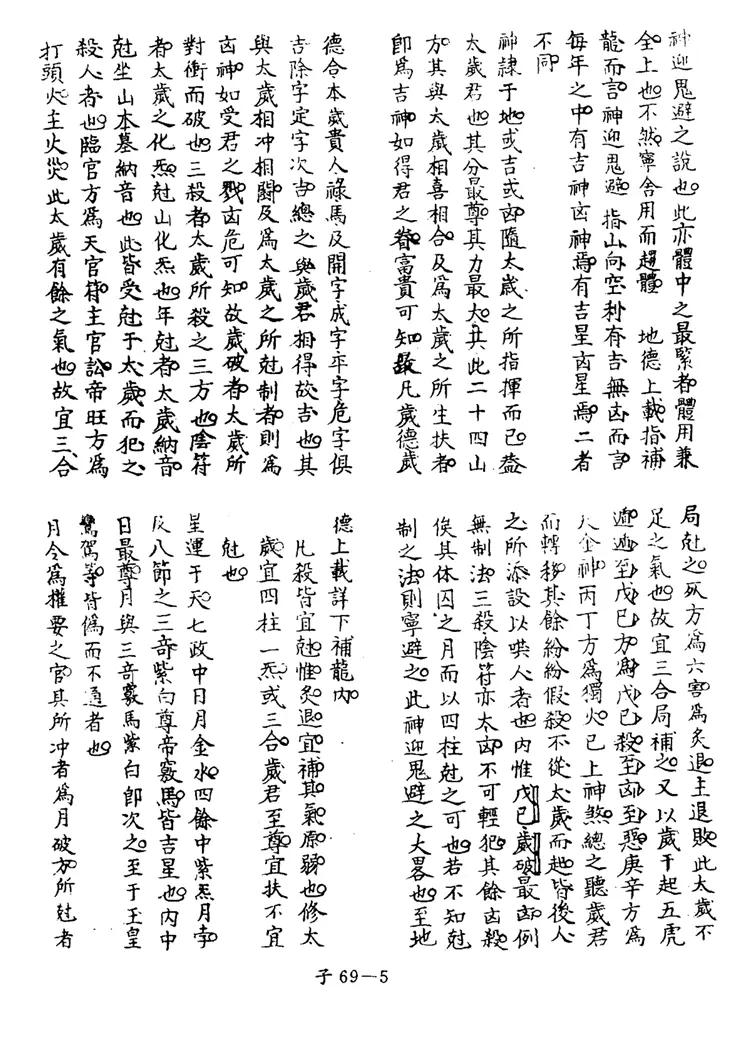 神迎鬼避之說也此亦體中之最緊者體用兼
全上也不然寧舍用而趨體　地德上載指補
龍而言神迎鬼避　指山向空利有吉無凶而言
每年之中有吉神凶神焉有吉星凶星焉二者
不同
神隸于地或吉或凶隨太歲之所指揮而已蓋
太歲君也其分最尊其力最大其此二十四山
方其與太歲相喜相合及為太歲之所生扶者
卽為吉神如得君之眷富貴可知最凡歲德歲
德合本歲貴人祿馬及開字成字平字危字俱
吉除字定字次吉總之與歲君相得故吉也其
與太歲相冲相鬬及為太歲之所尅制者則為
凶神如受君之戮凶危可知故歲破者太歲所
對衝而破也三殺者太歲所殺之三方也陰符
者太歲之化炁尅山化炁也年尅者太歲納音
尅坐山本墓納音也此皆受尅于太歲而犯之
殺人者也臨官方為天官符主官訟帝旺方為
打頭火主火災此太歲有餘之氣也故宜三合
局尅之死方為六害為炙退主退敗此太歲不
足之氣也故宜三合局補之又以歲干起五虎
遁遁至戊己方為戊己殺至凶至惡庚辛方為
天金神丙丁方為獨火已上神煞總之聽歲君
而轉移其餘紛紛假殺不從太歲而起皆後人
之所添設以哄人者也內惟戊己歲破最凶例
無制法三殺陰符亦太凶不可輕犯其餘凶殺
俟其休囚之月而以四柱尅之可也若不知尅
制之法則寧避之此神迎鬼避之大畧也至地
德上載詳下補龍內
凡殺皆宜尅惟炙退宜補其氣原弱也修太
歲宜四柱一炁或三合歲君至尊宜扶不宜
尅也
星運于天七政中日月金水四餘中紫炁月孛
及八節之三奇紫白尊帝竅馬皆吉星也內中
日最尊月與三奇竅馬紫白卽次之至于玉皇
鸞駕等皆僞而不通者也
月令為權要之官其所冲者為月破方所尅者
子69—5